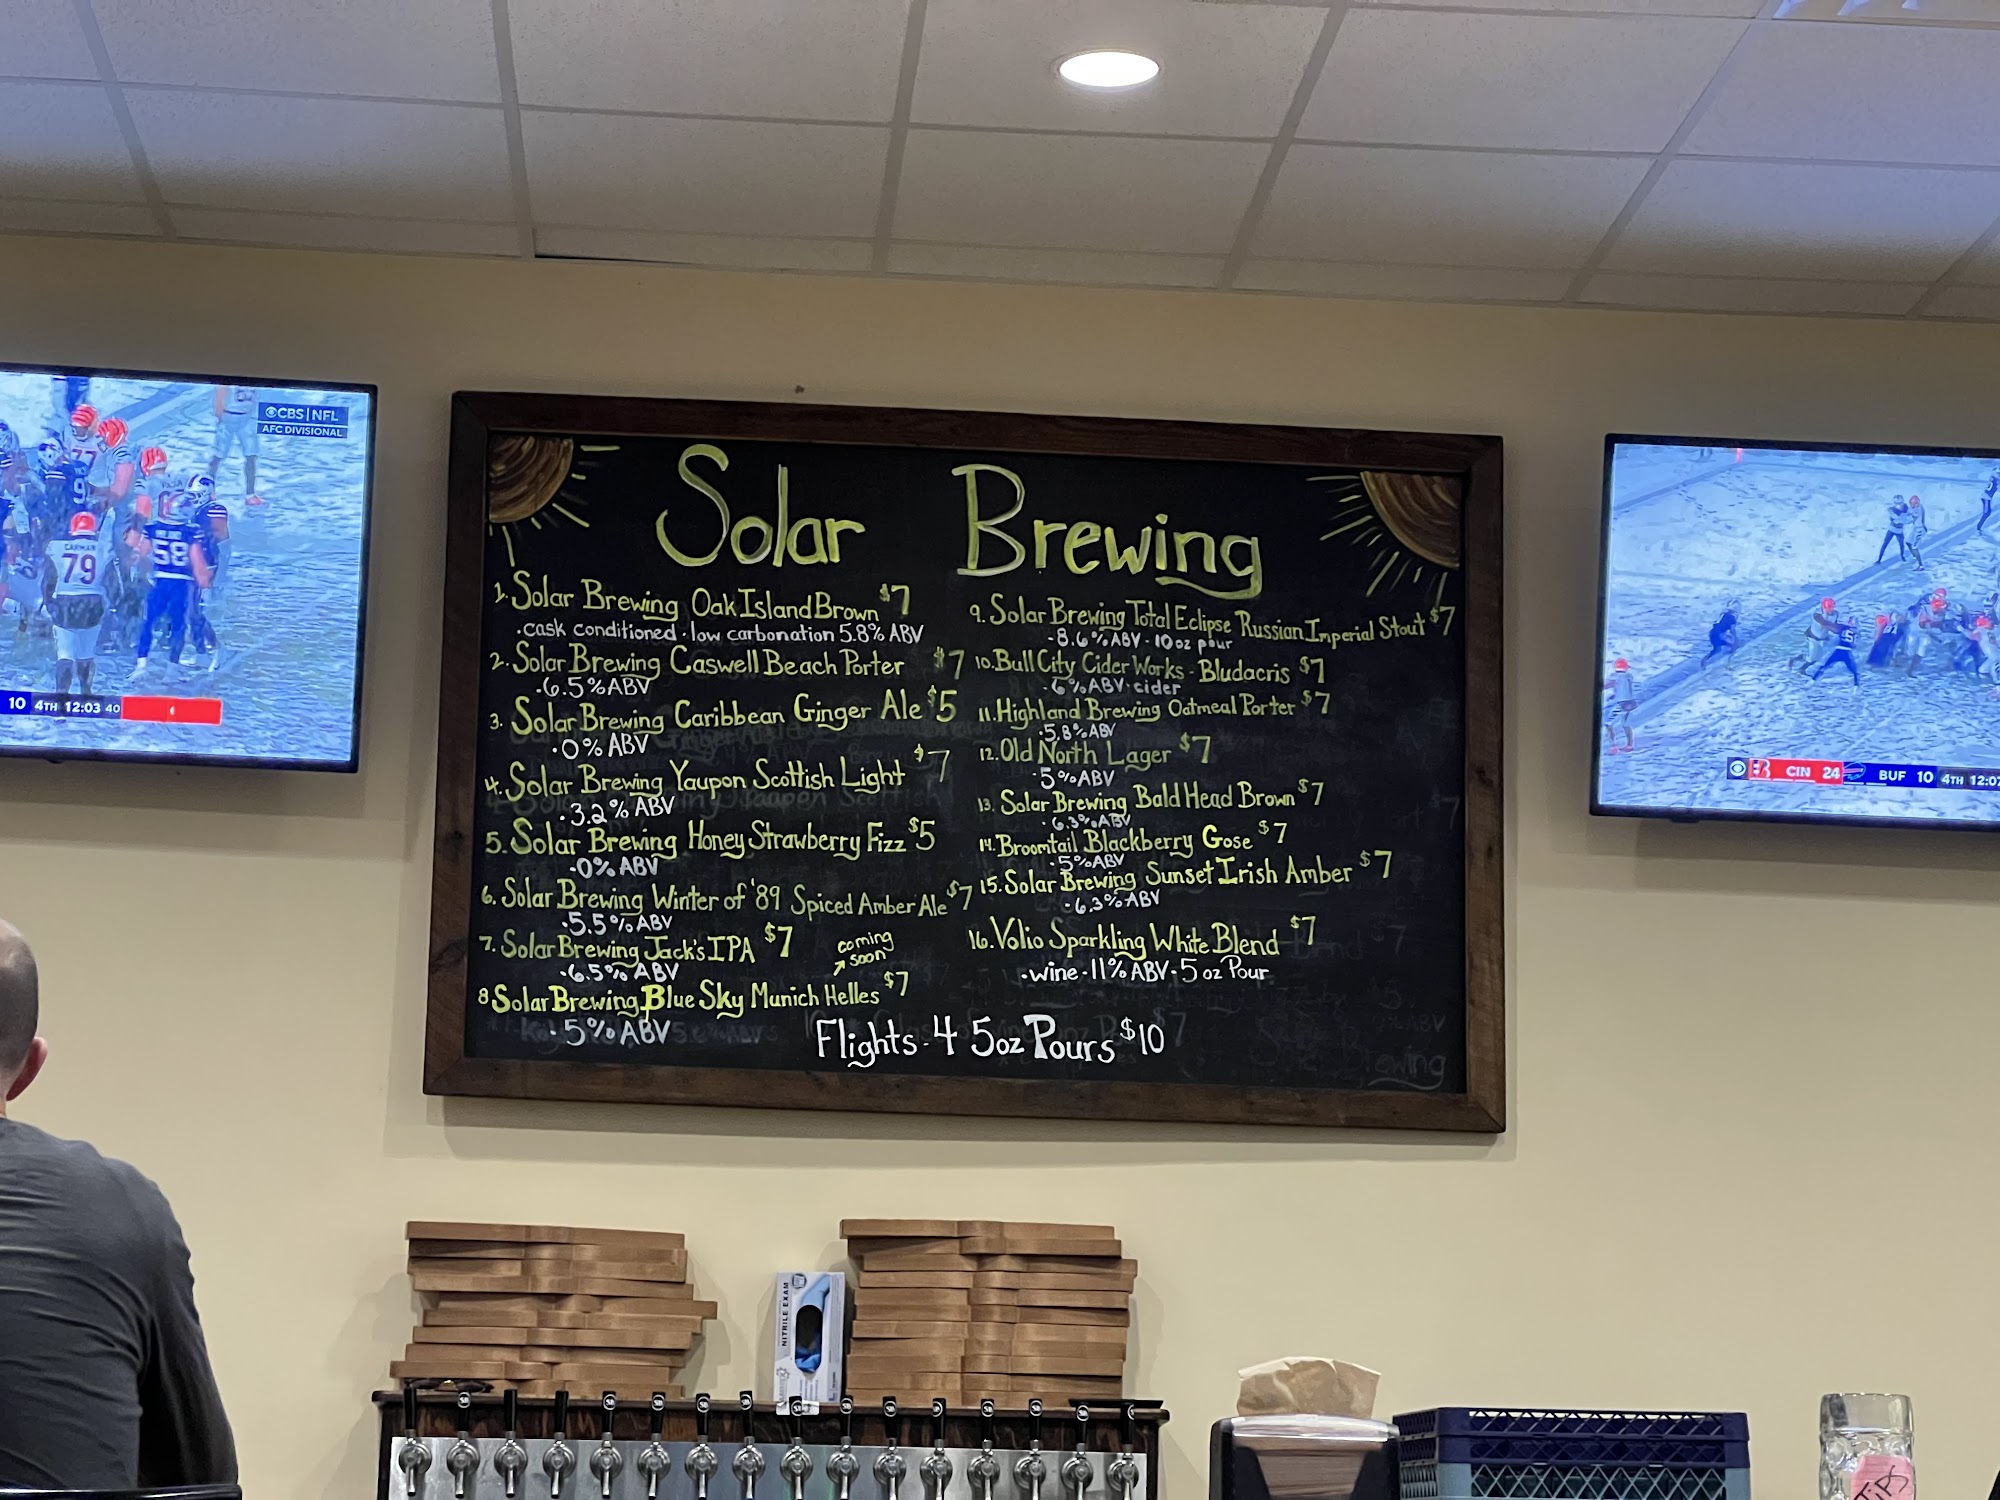 CBS | NFL
AFC DIVISIONAL
77
9
CARMAN
79
58
10 4TH 12:03 40
Solar Brewing
1. Solar Brewing Oak Island Brown $7
· cask conditioned · low carbonation 5.8% ABV
2. Solar Brewing Caswell Beach Porter $7
· 6.5% ABV
3. Solar Brewing Caribbean Ginger Ale $5
· 0% ABV
4. Solar Brewing Yaupon Scottish Light $7
· 3.2% ABV
5. Solar Brewing Honey Strawberry Fizz $5
· 0% ABV
6. Solar Brewing Winter of '89 Spiced Amber Ale $7
· 5.5% ABV
7. Solar Brewing Jack's IPA $7
· 6.5% ABV
coming
soon
8 Solar Brewing Blue Sky Munich Helles $7
· 5% ABV
9. Solar Brewing Total Eclipse Russian Imperial Stout $7
- 8.6% ABV - 10 oz pour
10. Bull City Cider Works - Bludacris $7
- 6% ABV · cider
11. Highland Brewing Oatmeal Porter $7
· 5.8% ABV
12. Old North Lager $7
· 5% ABV
13. Solar Brewing Bald Head Brown $7
· 6.3% ABV
14. Broomtail Blackberry Gose $7
· 5% ABV
15. Solar Brewing Sunset Irish Amber $7
- 6.3% ABV
16. Volio Sparkling White Blend $7
· wine · 11% ABV · 5 oz Pour
Flights - 4 5oz Pours $10
CIN 24 BUF 10 4TH 12:07
NITRILE EXAM
TIPS